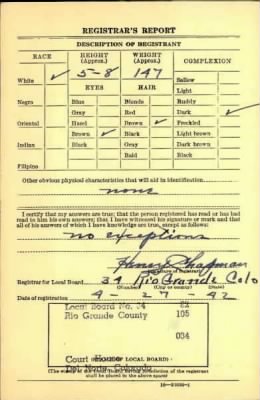 REGISTRAR'S REPORT
DESCRIPTION OF REGISTRANT
RACE HEIGHT (Approx.) WEIGHT (Approx.) COMPLEXION
White ✓ 5-8 147 Sallow
EYES HAIR Light
Negro Blue Blonde Ruddy
Gray Red Dark ✓
Oriental Hazel Brown ✓ Freckled
Brown ✓ Black Light brown
Indian Black Gray Dark brown
Bald Black
Filipino
Other obvious physical characteristics that will aid in identification
none
I certify that my answers are true; that the person registered has read or has had
read to him his own answers; that I have witnessed his signature or mark and that
all of his answers of which I have knowledge are true, except as follows:
no exceptions
Chapman
Registrar for Local Board 34 Rio Grande Colo
(Number) (City or county) (State)
Date of registration 4 - 27 - 42
Local Board No. 34 82
Rio Grande County 105
034
Court House
LOCAL BOARD
Del Norte, Colorado
(The stamp of the Local Board having jurisdiction of the registrant
shall be placed in the above space)